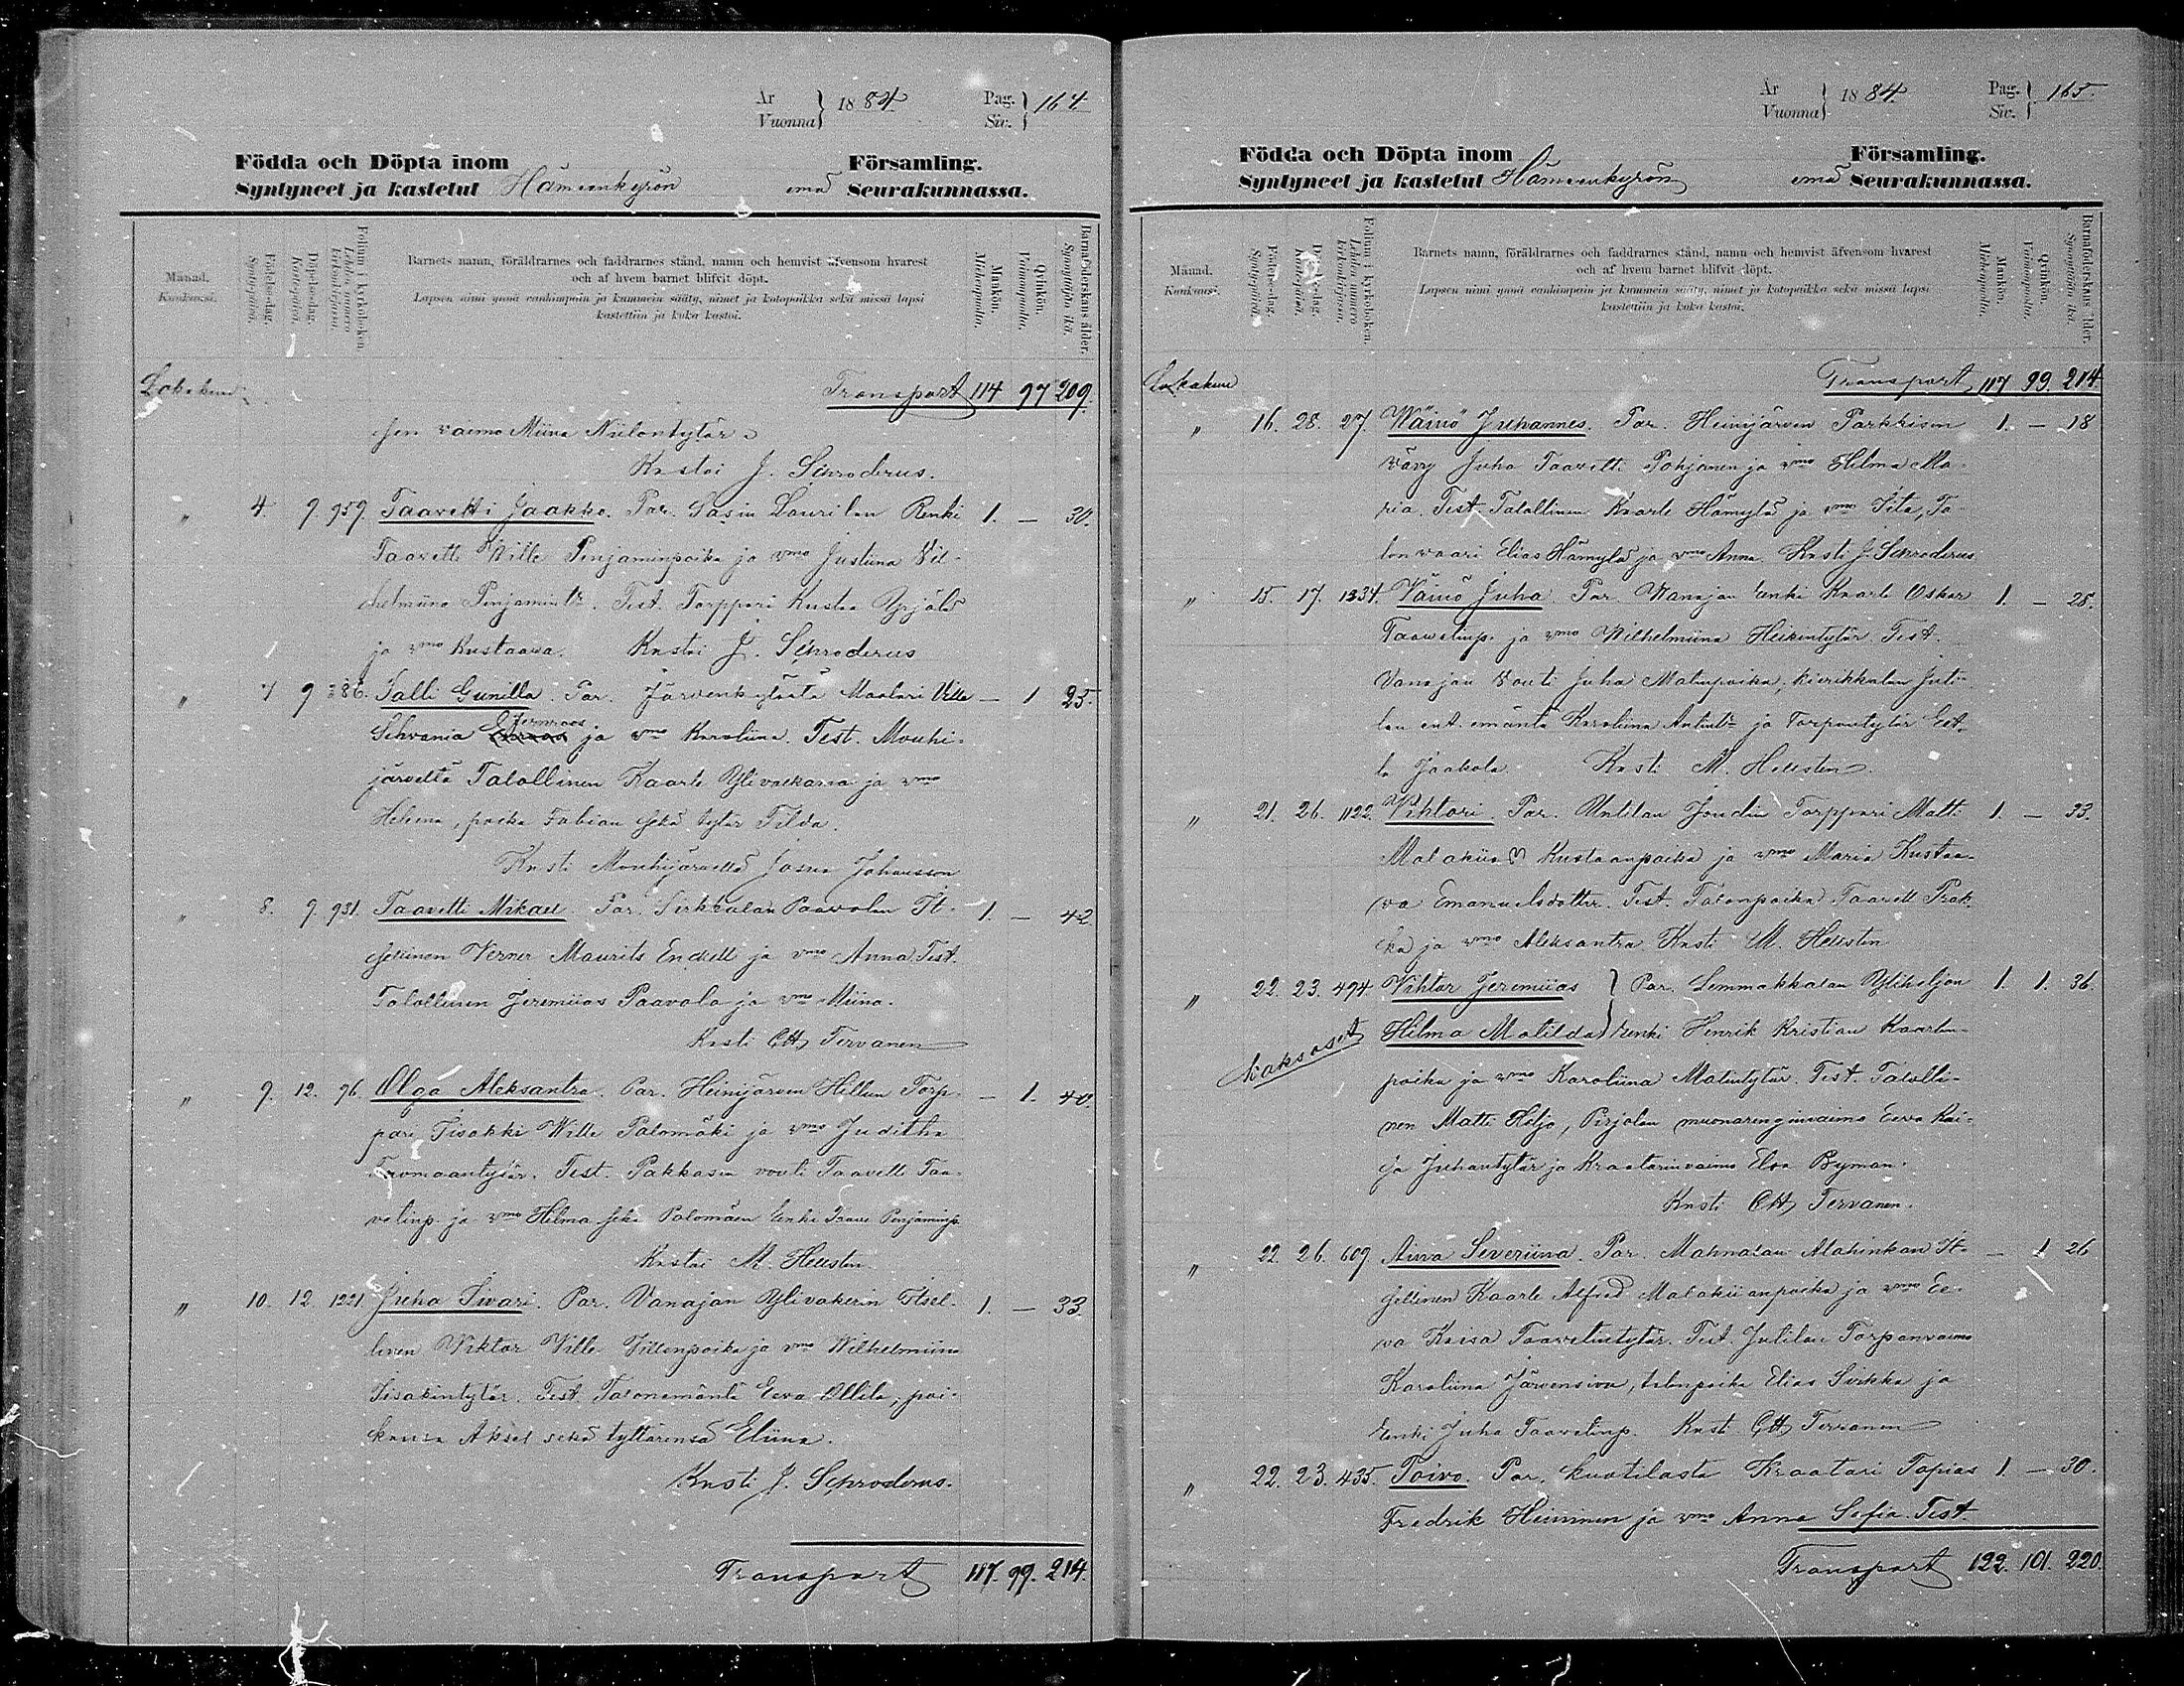 År
Vuonna } 1884 Pag.
Siv. } 164
Födda och Döpta inom Församling.
Syntyneet ja kastetut Hämeenkyrön emä Seurakunnassa.
Månad.
Kuukausi.
Födelse-dag.
Syntypäivä.
Döpelse-dag.
Kastepäivä.
Folium i kyrkoboken.
Lehden numero kirkonkirjassa.
Barnets namn, föräldrarnes och faddrarnes stånd, namn och hemvist äfvensom hvarest
och af hvem barnet blifvit döpt.
Lapsen nimi ynnä vanhimpain ja kummein sääty, nimet ja kotopaikka sekä missä lapsi
kastettiin ja kuka kastoi.
Mankön.
Miehenpuolia.
Qvinkön.
Vaimonpuolia.
Barnaföderskans ålder.
Synnyttäjän ikä.
Lokakuu Transport 114 97 209.
sen vaimo Miina Niilontytär
Kastoi J. Schroderus.
" 4. 9. 959. Taavetti Jaakko. Par. Sasin Laurilan Renki 1. — 30.
Taavetti Wille Penjaminpoika ja vmo Justiina Vil-
helmiina Penjamintr. Test. Torppari Kustaa Yrjälä
ja vmo Kustaava. Kastoi J. Schroderus
" 7 9 286. Salli Gunilla. Par. Järvenkylästä Maalari Ville — 1 25.
Sehvania Jernroos ja vmo Karoliina. Test. Mouhi-
järveltä Talollinen Kaarle Ylivakeria ja vmo
Helena, poika Fabian sekä tytär Tilda.
Kasti Mouhijärvellä Johansson
" 8. 9. 931. Taavetti Mikael. Par. Sirkkalan Paavolan It- 1. — 42.
sellinen Verner Maurits Enckell ja vmo Anna. Test.
Talollinen Jeremiias Paavola ja vmo Miina.
Kasti Tervanen
" 9. 12. 96. Olga Aleksantra. Par. Heinijärven Hillun Torp- — 1. 40.
pari Iisakki Wille Palomäki ja vmo Juditha
Tuomaantytär. Test. Pakkasen vouti Taavetti Taa-
velinp. ja vmo Helma sekä Palomäen Renki Penjaminp.
Kastoi M. Hellsten
" 10. 12 1221. Juha Iivari. Par. Vanajan Ylivakerin Itsel- 1. — 33.
linen Viktor Ville Villenpoika ja vmo Wilhelmiina
Iisakintytär. Test. Talonemäntä Eeva Ollila, poi-
kansa Aksel sekä tyttärensä Eliina.
Kasti J. Schroderus.
Transport 117. 99. 214.
År
Vuonna } 1884. Pag.
Siv. } 165.
Födda och Döpta inom Församling.
Syntyneet ja kastetut Hämeenkyrön emä Seurakunnassa.
Månad.
Kuukausi.
Födelse-dag.
Syntypäivä.
Döpelse-dag.
Kastepäivä.
Folium i kyrkoboken.
Lehden numero kirkonkirjassa.
Barnets namn, föräldrarnes och faddrarnes stånd, namn och hemvist äfvensom hvarest
och af hvem barnet blifvit döpt.
Lapsen nimi ynnä vanhimpain ja kummein sääty, nimet ja kotopaikka sekä missä lapsi
kastettiin ja kuka kastoi.
Mankön.
Miehenpuolia.
Qvinkön.
Vaimonpuolia.
Barnaföderskans ålder.
Synnyttäjän ikä.
Lokakuu Transport 117 99. 214
" 16. 28. 27. Wäinö Juhannes. Par. Heinijärven Parkkisen 1. — 18
vävy Juho Taavetti Pohjanen ja vmo Hilma Ma-
ria. Test. Talollinen Kaarle Hämylä ja vmo Iita, Ta-
lon vaari Elias Hämylä ja vmo Anna. Kasti J. Schroderus
" 15. 17. 1234. Väinö Juha. Par. Vanajan Renki Kaarle Oskar 1. — 28.
Taavetinp. ja vmo Wilhelmiina Heikintytär. Test.
Vanajan Vouti Juha Matinpoika, Kierikkalan Juti-
lan ent. emäntä Karoliina Antintr ja Torpantytär Eet-
la Jaakola. Kasti M. Hellsten.
" 21. 26. 1122. Vihtori. Par. Untilan Jondin Torppari Matti 1. — 33.
Malakias Kustaanpoika ja vmo Maria Kustaa-
va Emanuelsdotter. Test. Talonpoika Taavetti Prak-
ka ja vmo Aleksantra Kasti M. Hellsten
" 22. 23. 494. Vihtor Jeremiias } Par. Lemmakkalan Yliheljon 1. 1. 36.
kaksoset Hilma Matilda } Renki Henrik Kristian Kaarlen-
poika ja vmo Karoliina Matintytär. Test. Talolli-
nen Matti Heljo, Pirjolan muonarenginvaimo Eeva Kai-
sa Juhantytär ja Kraatarinvaimo Elsa Byman.
Kasti Tervanen.
" 22. 26. 609. Aina Severiina. Par. Mahnalan Alahinkan It- — 1 26
sellinen Kaarle Alfred Malakiianpoika ja vmo Ee-
va Kaisa Taavetintytär. Test. Jutilan Torpanvaimo
Karoliina Järvensivu, talonpoika Elias Sirkka ja
Renki Juha Taavetinp. Kast. Tervanen
" 22. 23. 435. Toivo. Par. Kuotilasta Kraatari Topias 1. — 30.
Fredrik Heininen ja vmo Anna Sofia. Test.
Transport 122. 101. 220.